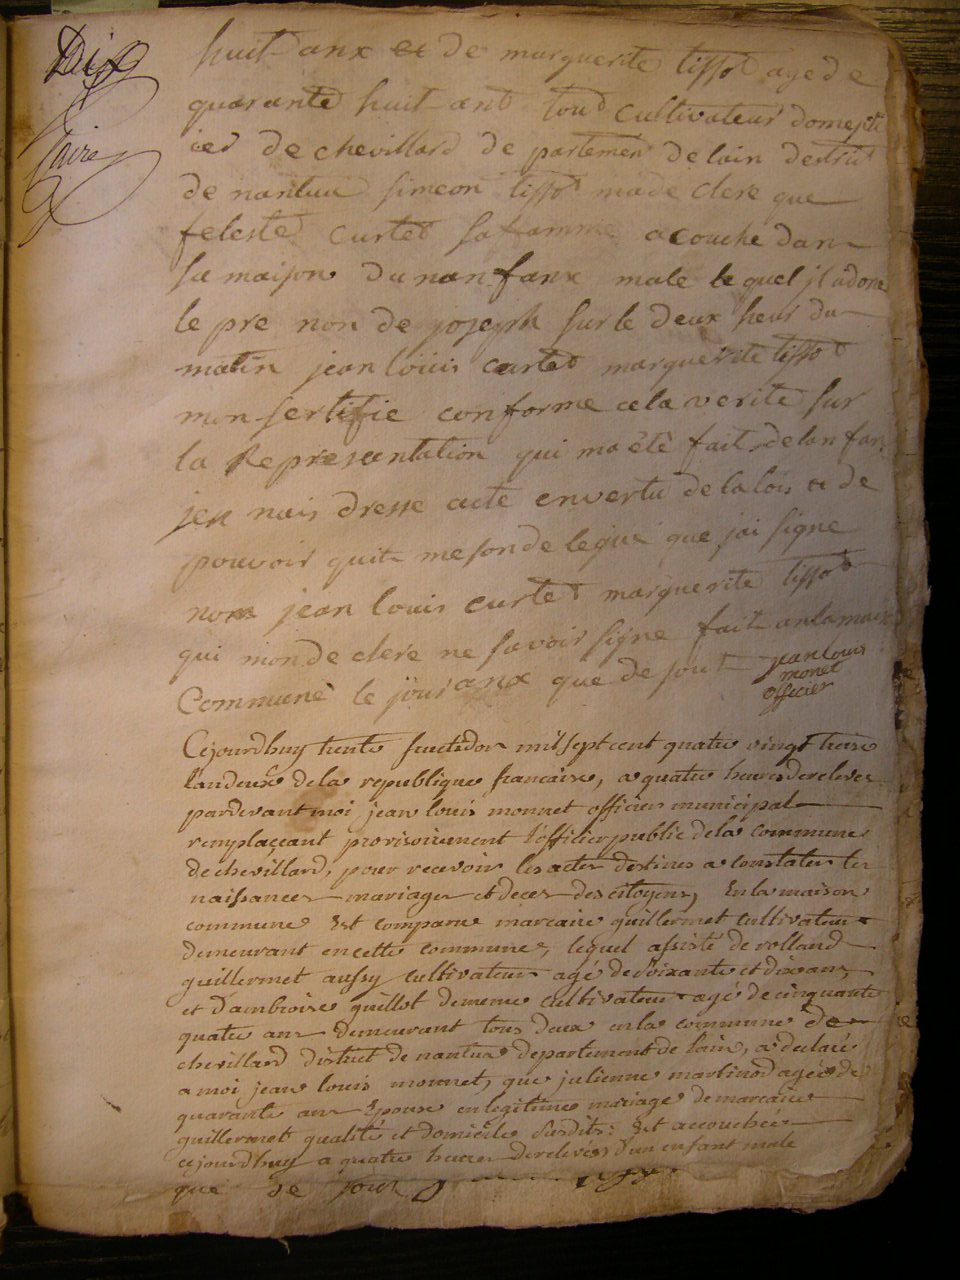 Dix
huit anx et de marguerite tissot age de
quarante huit ant tout cultivateur domesti
ier de chevillard de partemen de lain destrit
de nantua simeon tissot ma de clere que
feleste curtet sa famme a couche dan
sa maison du nan fanx male le quel jl a done
le pre non de joseph sur le deux heur du
matin jean louis curtet marguerite tissot
mon sertifie conforme a la verite sur
la Representation qui ma ete fait de lan fan
jen nais dresse acte en vertu de la lois et de
pouvoir quit me son de legué que jai signe
non jean louis curtet marguerite tissot
qui mon de clere ne savoir signe fait an la mai
Commune le jour anx que de sout jean louis
monet
officier
Cejourdhuy trente fructidor mil sept cent quatre vingt treise
l'andeux de la republique francaise, a quatre heures derelevee
pardevant moi jean louis monnet officier municipal
remplaçant provisoirement l'officier public de la commune
de chevillard, pour recevoir les actes destines a constater les
naissances mariages et deces des citoyens, En la maison
commune Est comparu marcaire guillermet cultivateur
demeurant en cette commune, lequel assisté de rolland
guillermet aussy cultivateur agé de soixante et dix ans
et d'ambroise guillot de meme cultivateur agé de cinquante
quatre ans demeurant tous deux en la commune de
chevillard district de nantua departement de lain, a declaré
a moi jean louis monnet, que julienne martinod agée de
quarante ans Epouse en legitime mariage de marcaire
guillermet qualité et domicile susdits: Est accouchée
cejourdhuy a quatre heures derelevée d'un enfant male
que de jour